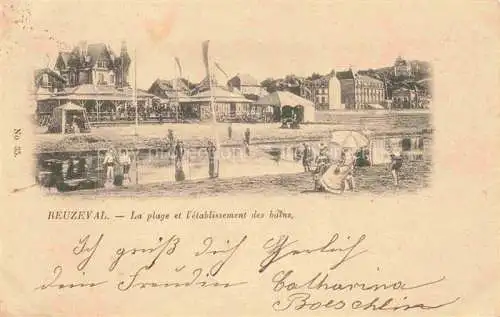 No 35.
BEUZEVAL. — La plage et l'établissement des bains.
Ich grüß dich herzlich
dein Freundin Catharina
Boeschlin